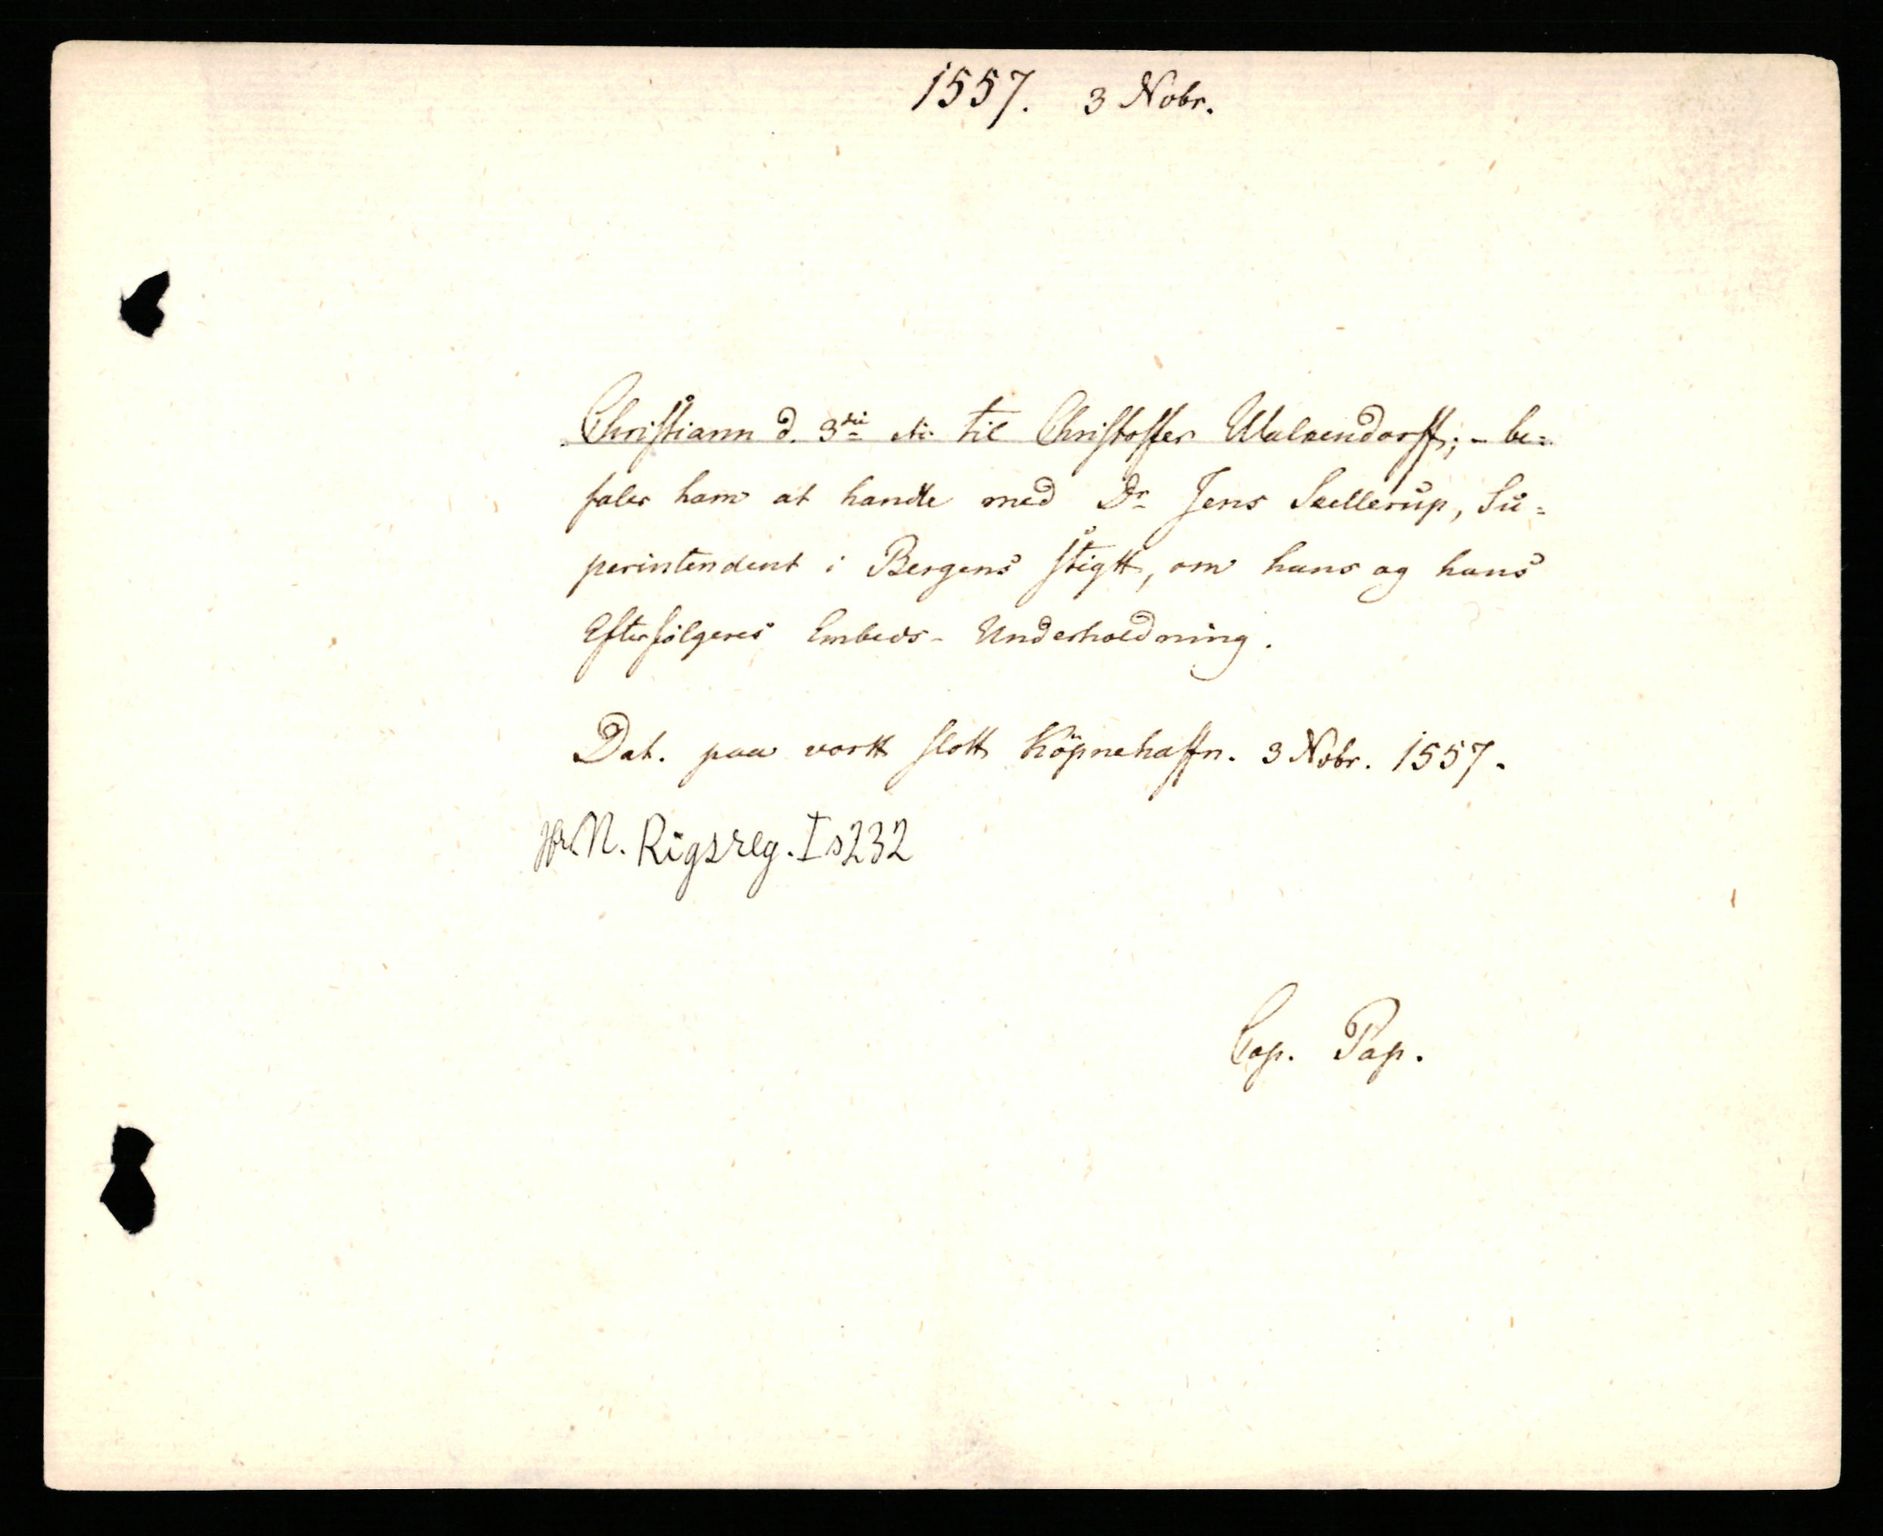 1557. 3 Nobr.
Christiann d. 3die til Christoffer Walkendorff; - be=
faler ham at handle med Dr Jens Skellerup, Su=
perintendent i Bergens stigtt, om hans og hans
Efterfölgeres Embeds- Underholdning.
Dat. paa vortt slott Köpnehaffn. 3 Nobr. 1557.
N. Rigsreg. I s 232
Cop. Pap.